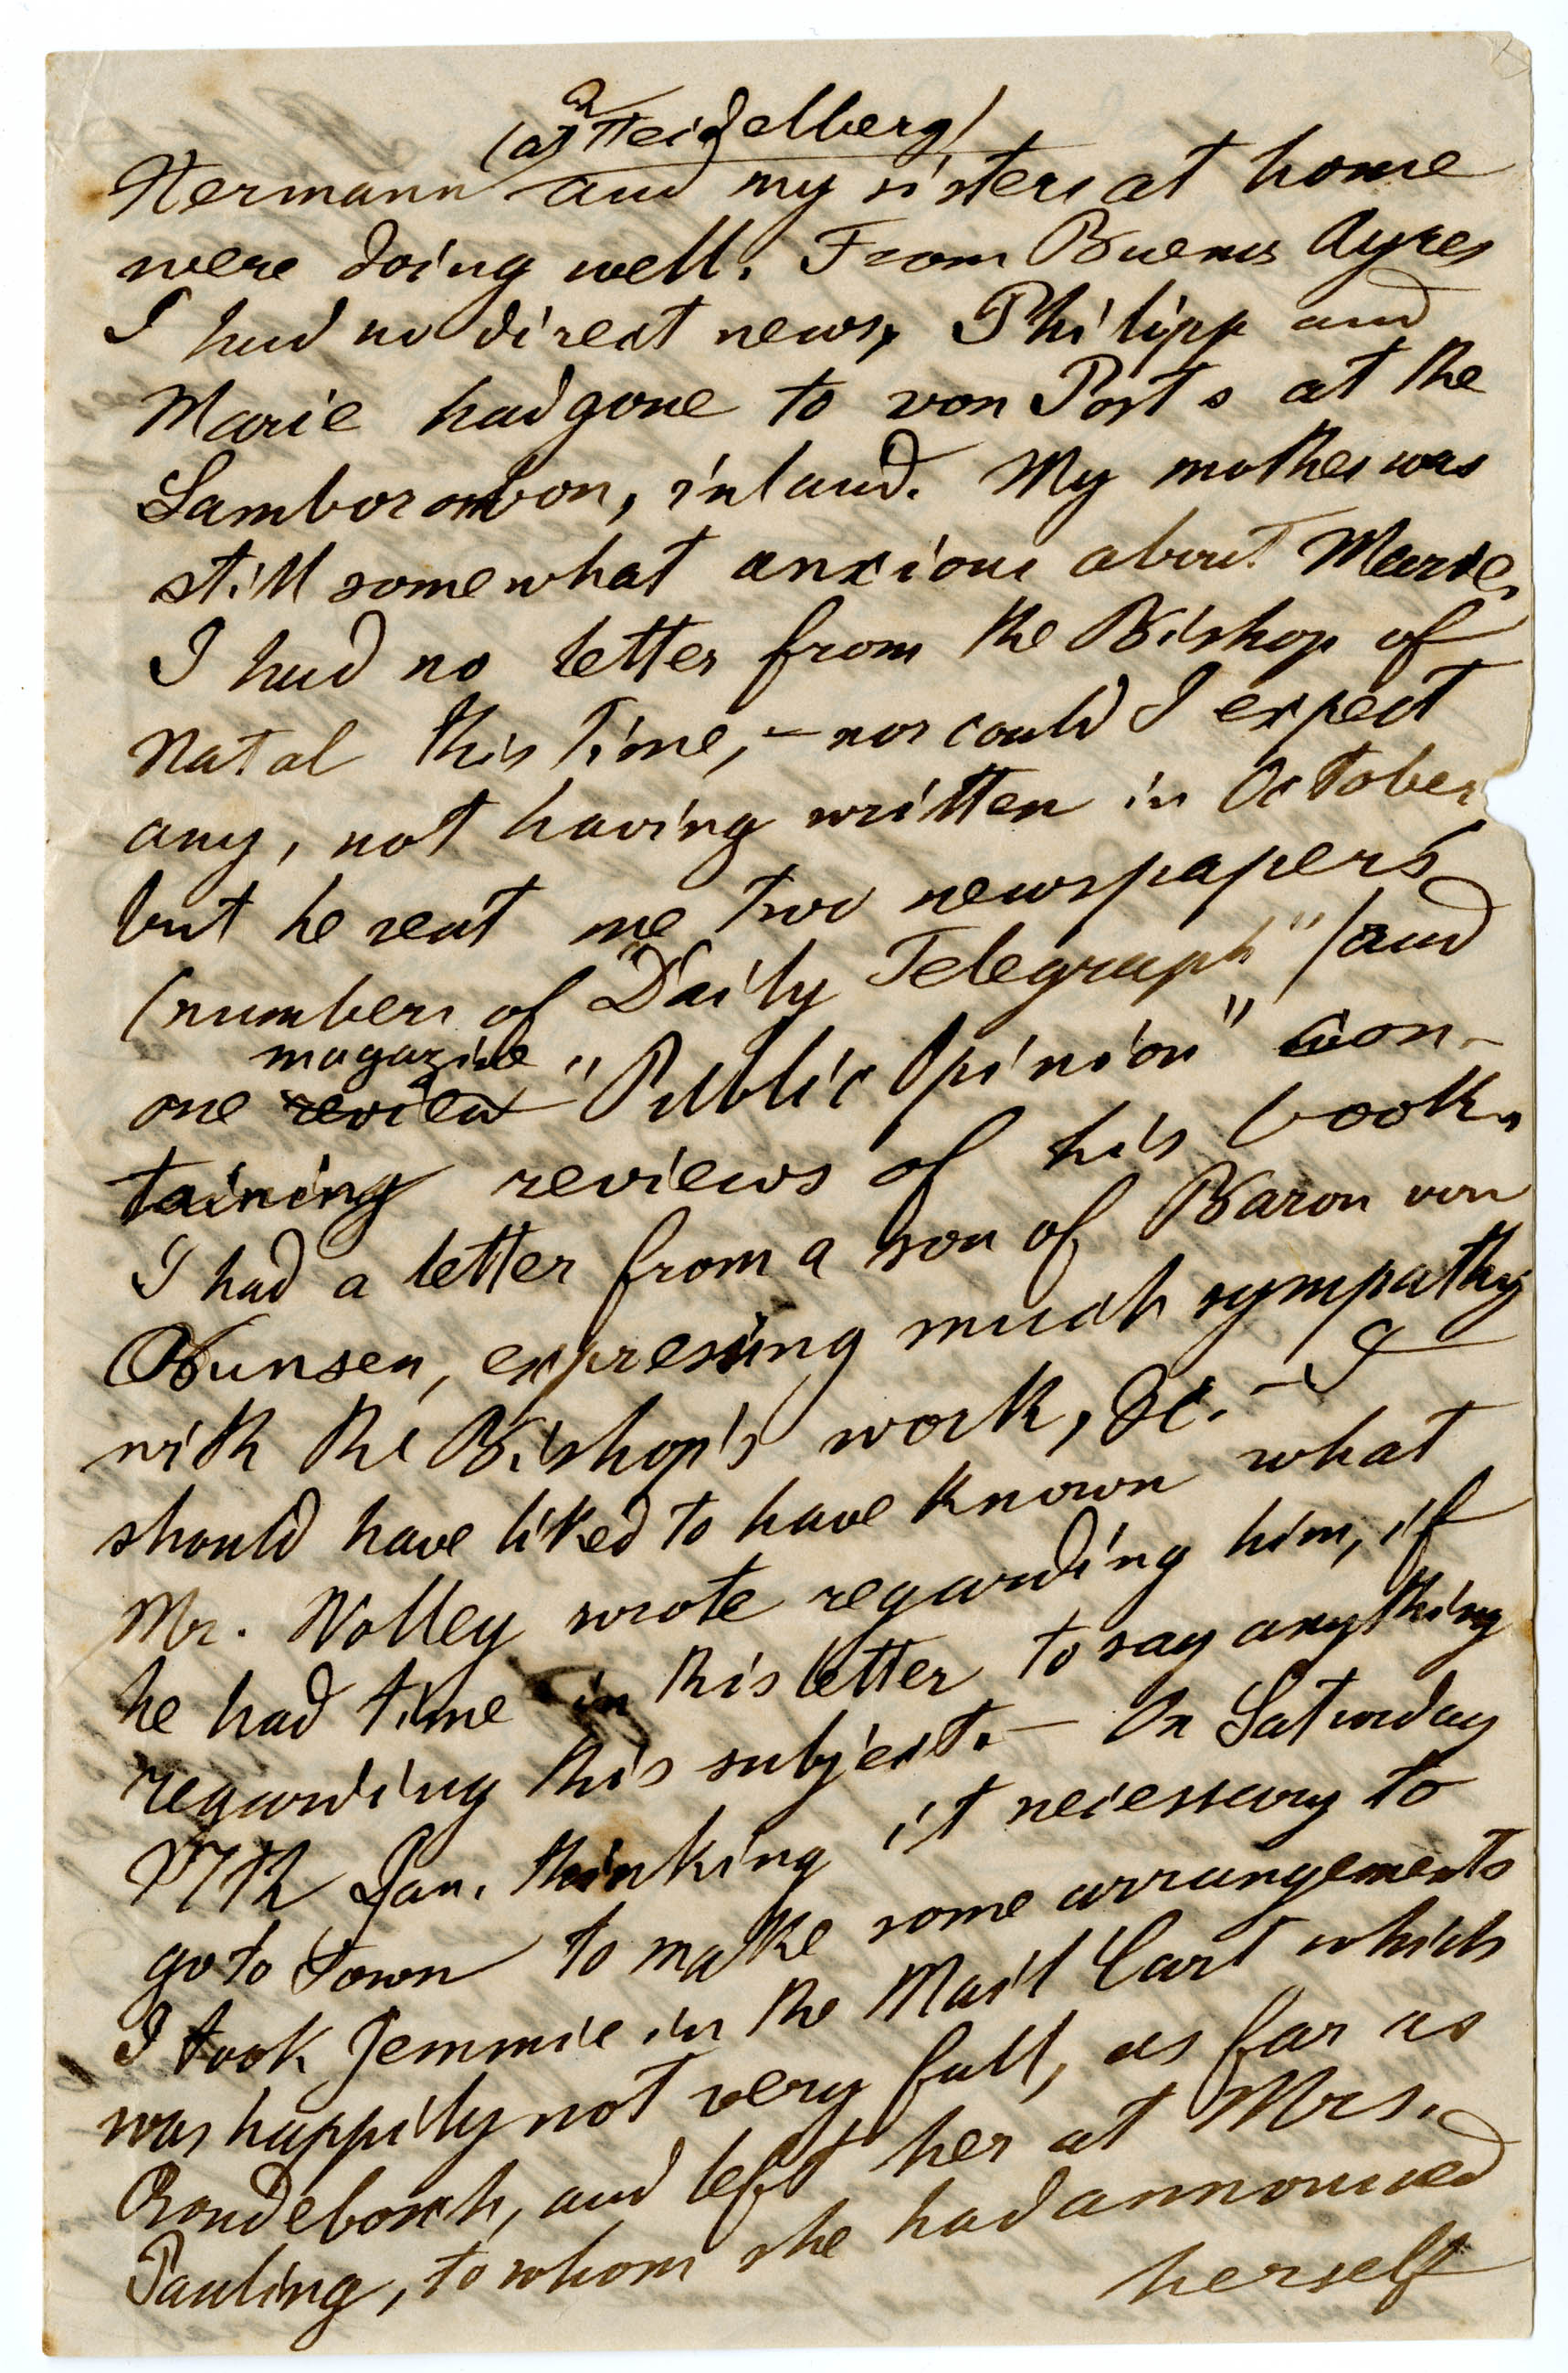 (at Heidelberg)
Hermann and my sisters at home
were doing well. From Buenos Ayres
I had no direct news, Philipp and
Marie had gone to von Posts at the
Samborombon, inland. My mother was
still somewhat anxious about Marie.
I had no letter from the Bishop of
Natal this time, – nor could I expect
any, not having written in October
but he sent me two newspapers
(numbers of "Daily Telegraph") and
magazine
one review "Public Opinion" con-
taining reviews of his book.
I had a letter from a son of Baron von
Bunsen, expressing much sympathy
with the Bishop's work, &c. – I
should have liked to have known what
Mr. Nolley wrote regarding him, if
he had time in this letter to say anything
regarding this subject. – On Saturday
17th Jan. thinking it necessary to
go to town to make some arrangements
I took Jemmie in the Mail Cart which
was happily not very full, as far as
Rondebosch, and left her at Mrs.
Pauling, to whom she had announced
herself